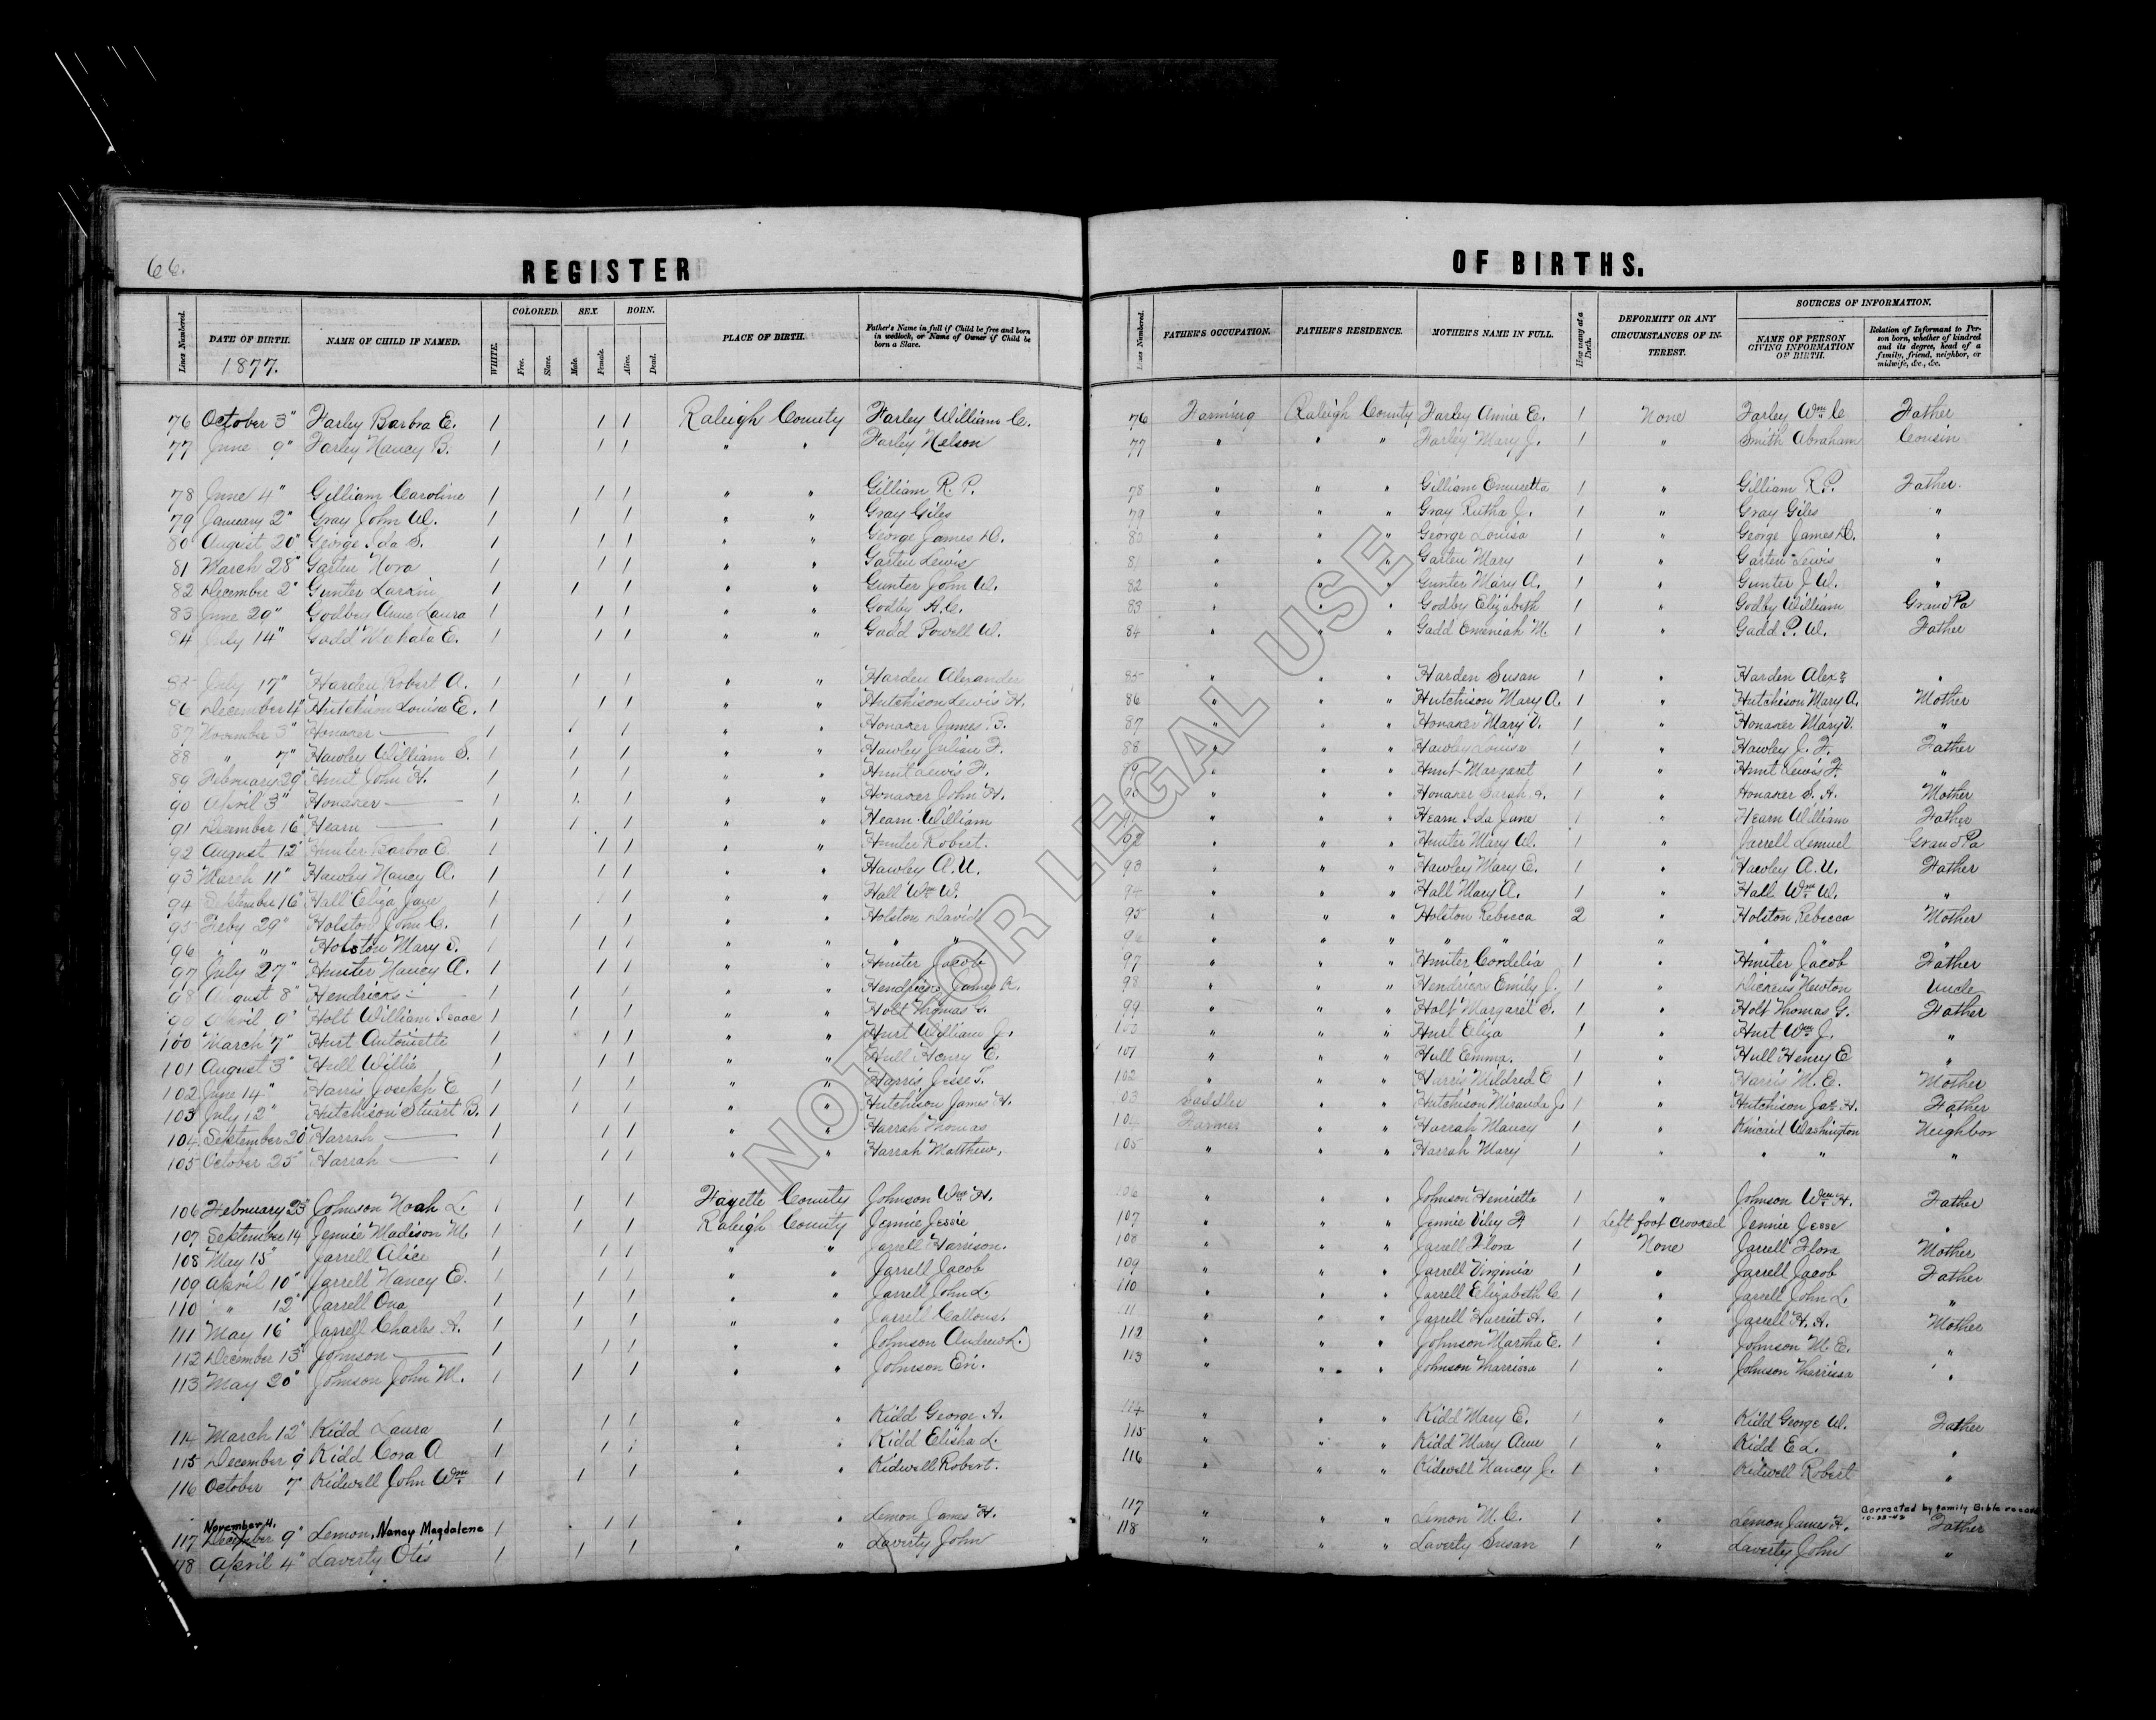 66.
REGISTER OF BIRTHS.
Lines Numbered. DATE OF BIRTH. 1877. NAME OF CHILD IF NAMED. WHITE. COLORED. Free. Slave. SEX. Male. Female. BORN. Alive. Dead. PLACE OF BIRTH. Father's Name in full if Child be free and born in wedlock, or Name of Owner if Child be born a Slave. Lines Numbered. FATHER'S OCCUPATION. FATHER'S RESIDENCE. MOTHER'S NAME IN FULL. How many at a Birth. DEFORMITY OR ANY CIRCUMSTANCES OF INTEREST. SOURCES OF INFORMATION. NAME OF PERSON GIVING INFORMATION OF BIRTH. Relation of Informant to Person born, whether of kindred and its degree, head of a family, friend, neighbor, or midwife, &c., &c.
76 October 3" Farley Barbra E. 1 1 1 Raleigh County Farley William C. 76 Farming Raleigh County Farley Annie E. 1 None Farley Wm C Father
77 June 9" Farley Nancy B. 1 1 1 " " Farley Nelson 77 " " " Farley Mary J. 1 " Smith Abraham Cousin
78 June 4" Gilliam Caroline 1 1 1 " " Gilliam R. P. 78 " " " Gilliam 1 " Gilliam R. P. Father.
79 January 2" Gray John W. 1 1 1 " " Gray Giles 79 " " " Gray Rutha J. 1 " Gray Giles "
80 August 20" George Ida S. 1 1 1 " " George James D. 80 " " " George Louisa 1 " George James D. "
81 March 28" Garten Nora 1 1 1 " " Garten Lewis 81 " " " Garten Mary 1 " Garten Lewis "
82 December 2" Gunter Larkin 1 1 1 " " Gunter John W. 82 " " " Gunter Mary A. 1 " Gunter J W. "
83 June 29" Godbey Anne Laura 1 1 1 " " Godby A. C. 83 " " " Godby Elizabeth 1 " Godby William Grand Pa
84 July 14" Gadd E. 1 1 1 " " Gadd Powell W. 84 " " " Gadd M. 1 " Gadd P. W. Father
85 July 17" Harden Robert A. 1 1 1 " " Harden Alexander 85 " " " Harden Susan 1 " Harden Alex "
86 December 4" Hutchison Louisa E. 1 1 1 " " Hutchison Lewis H. 86 " " " Hutchison Mary A. 1 " Hutchison Mary A. Mother
87 November 3" Honaker 1 1 1 " " Honaker James B. 87 " " " Honaker Mary V. 1 " Honaker Mary V. "
88 " 7" Hawley William S. 1 1 1 " " Hawley Julian F. 88 " " " Hawley Louisa 1 " Hawley J. F. Father
89 February 29" Hunt John H. 1 1 1 " " Hunt Lewis F. 89 " " " Hunt Margaret 1 " Hunt Lewis F. "
90 April 3" Honaker 1 1 1 " " Honaker John H. 90 " " " Honaker Sarah A. 1 " Honaker S. A. Mother
91 December 16" Hearn 1 1 1 " " Hearn William " " " Hearn Ida Jane 1 " Hearn William Father
92 August 12" Hunter Barbra C. 1 1 1 " " Hunter Robert. 92 " " " Hunter Mary W. 1 " Jarrell Lemuel Grand Pa
93 March 11" Hawley Nancy A. 1 1 1 " " Hawley A. U. 93 " " " Hawley Mary E. 1 " Hawley A. U. Father
94 September 16" Hall Eliza Jane 1 1 1 " " Hall Wm W. 94 " " " Hall Mary A. 1 " Hall Wm W. "
95 Feby 29" Holston John C. 1 1 1 " " Holston David 95 " " " Holston Rebecca 2 " Holston Rebecca Mother
96 " " Holston Mary S. 1 1 1 " " " " 96 " " " " " " " " "
97 July 27" Hunter Nancy A. 1 1 1 " " Hunter Jacob 97 " " " Hunter Cordelia 1 " Hunter Jacob Father
98 August 8" Hendricks 1 1 1 " " Hendricks James R. 98 " " " Hendricks Emily J. 1 " Dickens Newton Uncle
99 April 9" Holt William Isaac 1 1 1 " " Holt Thomas G. 99 " " " Holt Margaret S. 1 " Holt Thomas G. Father
100 March 7" Hurt Antoinette 1 1 1 " " Hurt William J. 100 " " " Hurt Eliza 1 " Hurt Wm J. "
101 August 3" Hull Willie 1 1 1 " " Hull Henry E. 101 " " " Hull Emma. 1 " Hull Henry E "
102 June 14" Harris Joseph E 1 1 1 " " Harris Jesse T. 102 " " " Harris Mildred E 1 " Harris M. E. Mother
103 July 12" Hutchison Stuart B. 1 1 1 " " Hutchison James H. 103 Saddler " " Hutchison Miranda J. 1 " Hutchison Jas. H. Father
104 September 20" Harrah 1 1 1 " " Harrah Thomas 104 Farmer " " Harrah Nancy 1 " Kincaid Washington Neighbor
105 October 25" Harrah 1 1 1 " " Harrah Matthew, 105 " " " Harrah Mary 1 " " " "
106 February 23" Johnson Noah L. 1 1 1 Fayette County Johnson Wm H. 106 " " " Johnson Henrietta 1 " Johnson Wm H. Father
107 September 14 Jennie Madison M 1 1 1 Raleigh County Jennie Jessie 107 " " " Jennie Viley F 1 Left foot crooked Jennie Jesse "
108 May 15" Jarrell Alice 1 1 1 " " Jarrell Harrison. 108 " " " Jarrell Flora 1 None Jarrell Flora Mother
109 April 10" Jarrell Nancy E. 1 1 1 " " Jarrell Jacob 109 " " " Jarrell Virginia 1 " Jarrell Jacob Father
110 " 12" Jarrell Ona 1 1 1 " " Jarrell John L. 110 " " " Jarrell Elizabeth C 1 " Jarrell John L. "
111 May 16" Jarrell Charles A. 1 1 1 " " Jarrell 111 " " " Jarrell Harriet A. 1 " Jarrell H. A. Mother
112 December 13" Johnson 1 1 1 " " Johnson Andrew L. 112 " " " Johnson Martha E. 1 " Johnson M. E. "
113 May 20" Johnson John M. 1 1 1 " " Johnson Eri. 113 " " " Johnson Tharrissa 1 " Johnson Tharrissa "
114 March 12" Kidd Laura 1 1 1 " " Kidd George A. 114 " " " Kidd Mary E. 1 " Kidd George W. Father
115 December 9" Kidd Cora A 1 1 1 " " Kidd Elisha L. 115 " " " Kidd Mary Ann 1 " Kidd E L. "
116 October 7" Kidwell John Wm 1 1 1 " " Kidwell Robert. 116 " " " Kidwell Nancy J. 1 " Kidwell Robert "
November 4. Corrected by family Bible record 10-23-42
117 December 9" Lemon, Nancy Magdalene 1 1 1 " " Lemon James H. 117 " " " Lemon M. C. 1 " Lemon James H. Father
118 April 4" Laverty Otis 1 1 1 " " Laverty John 118 " " " Laverty Susan 1 " Laverty John "
NOT FOR LEGAL USE